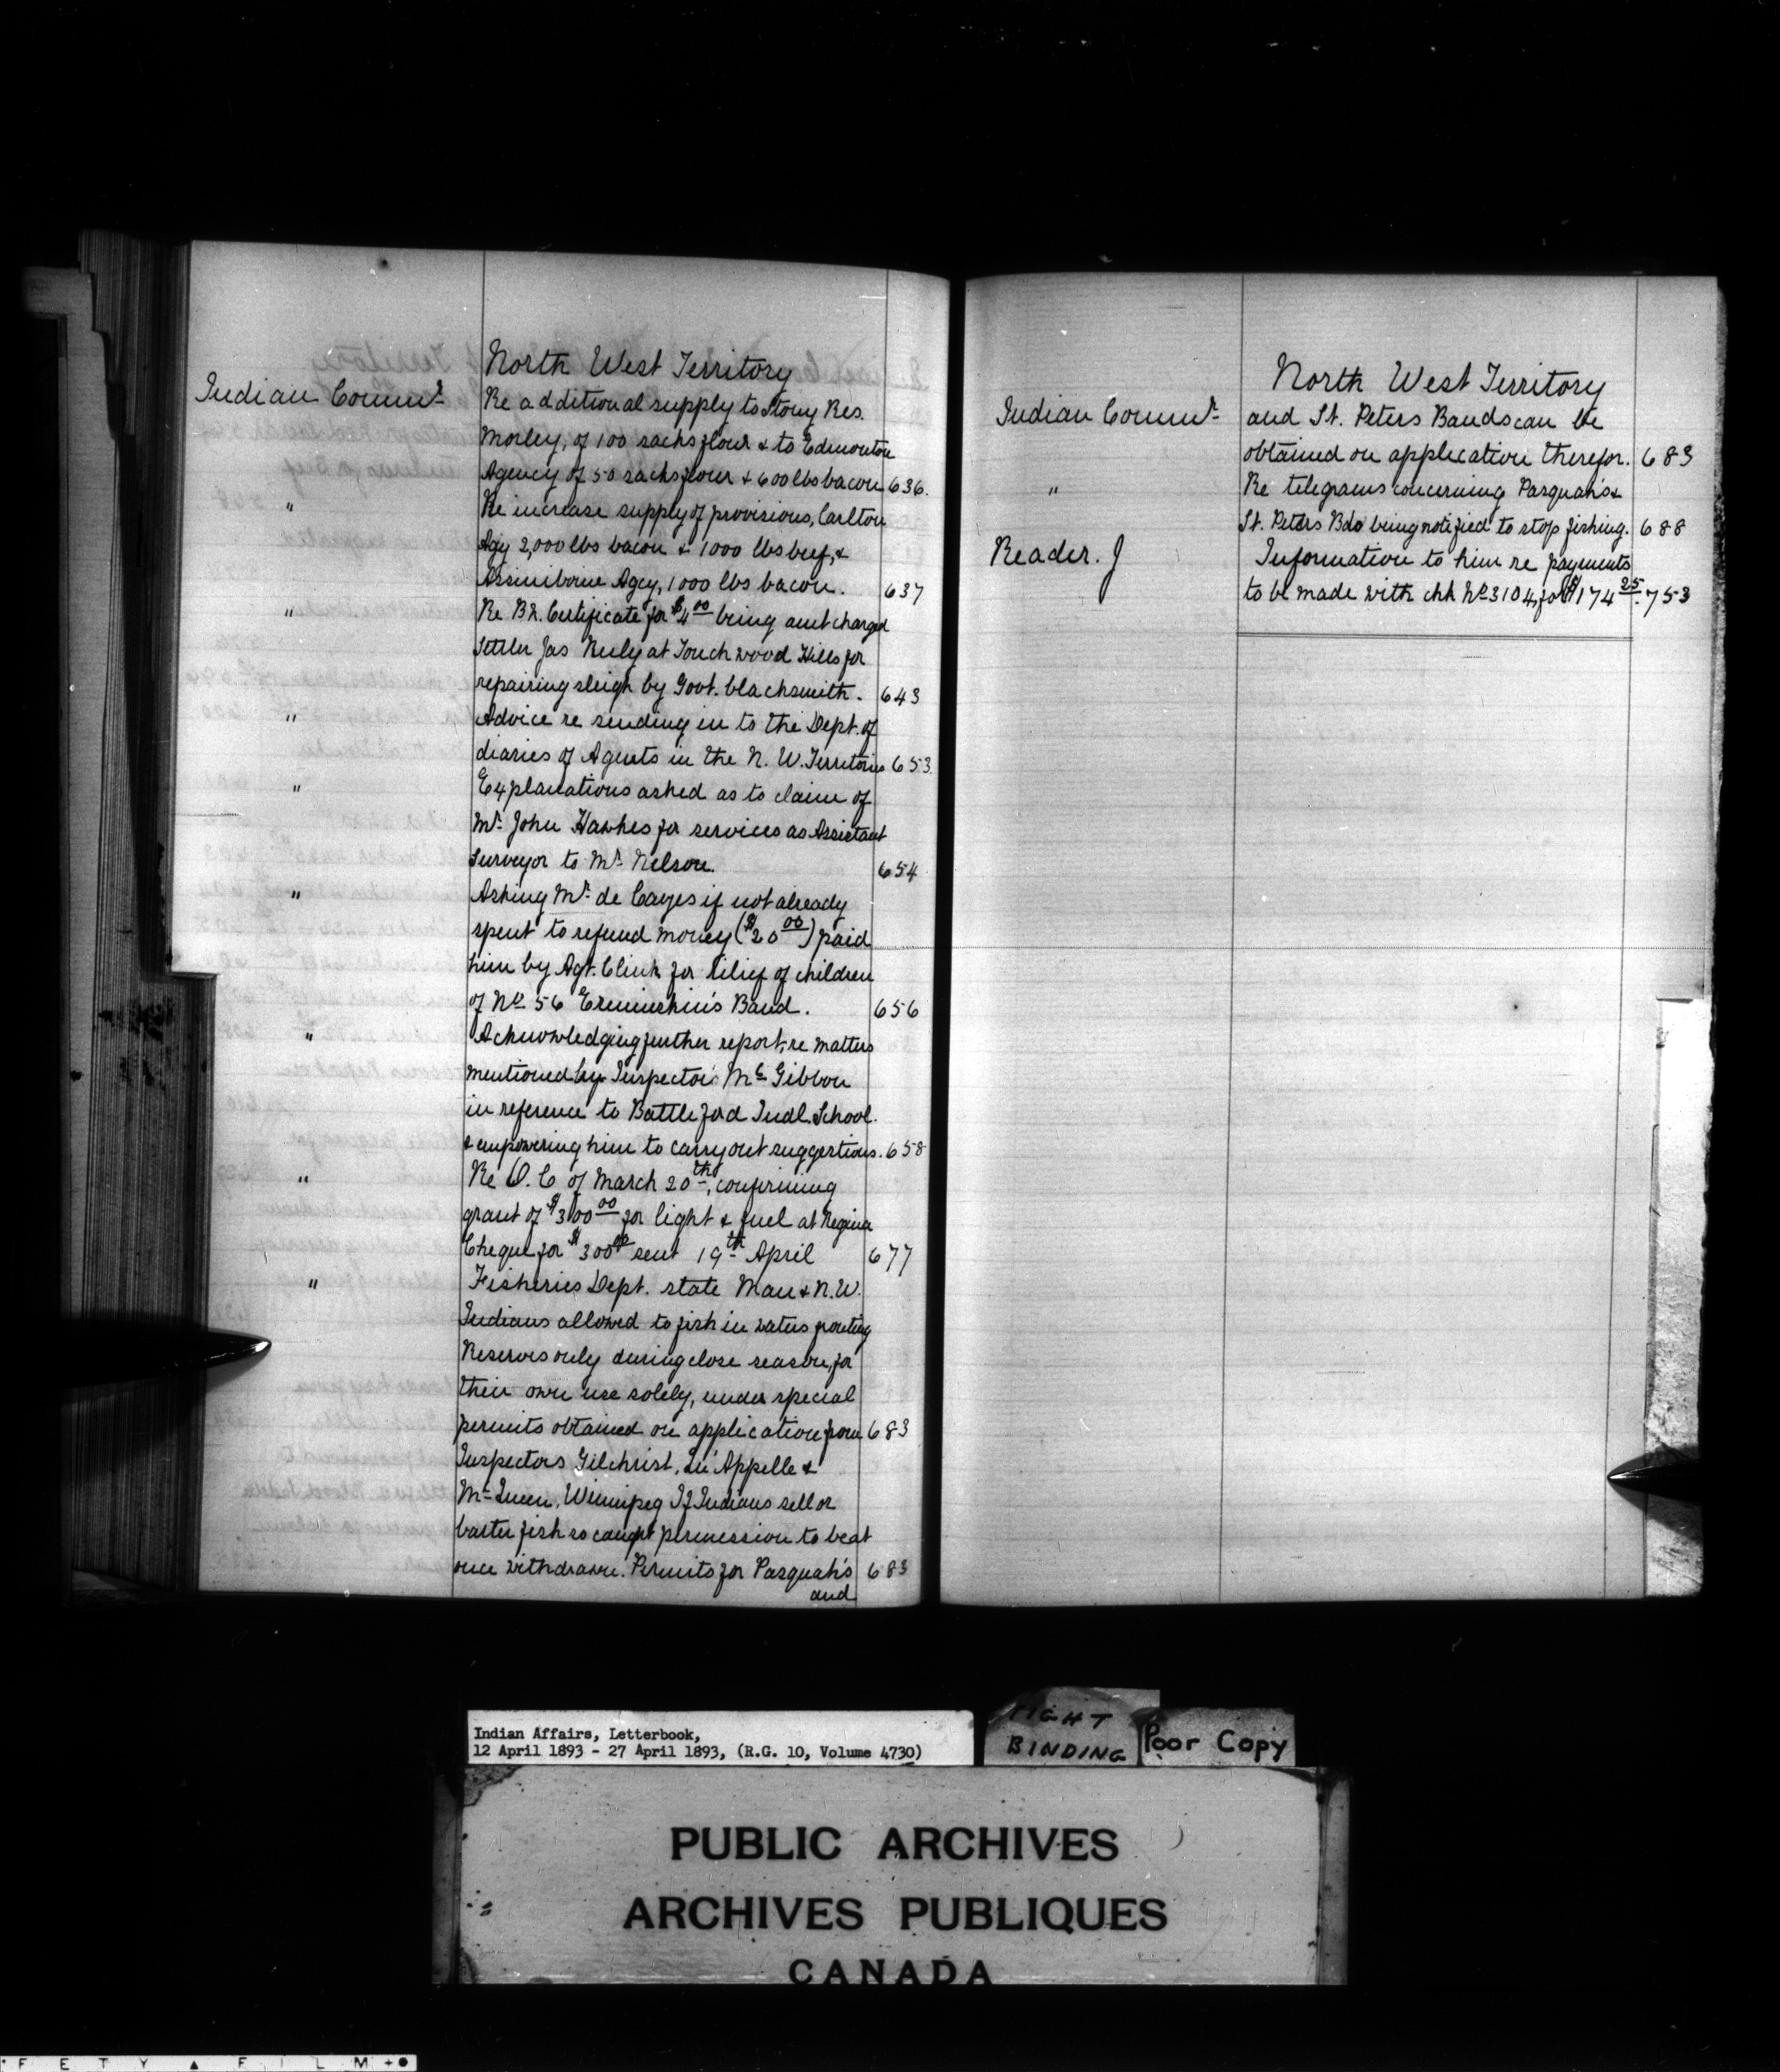 North West Territory
Indian Commr Re additional supply to Stony Res.
Morley, of 100 sacks flour & to Edmonton
Agency of 50 sacks flour & 600 lbs bacon 636.
" Re increase supply of provisions, Carlton
Agy 2,000 lbs bacon & 1000 lbs beef, &
Assiniboine Agcy, 1000 lbs bacon. 637
" Re Bk. Certificate for $4.00 being amt charged
Settler Jas at Touchwood Hills for
repairing sleigh by Govt. blacksmith. 643
" Advice re sending in to the Dept. of
diaries of Agents in the N. W. Territories 653
" Explanations asked as to claim of
Mr. John Hawkes for services as Assistant
Surveyor to Mr. Nelson. 654
" Asking Mr. de Cayes if not already
spent to refund money ($20.00) paid
him by Agt. Clink for relief of children
of No. 56 Ermineskin's Band. 656
" Acknowledging further report, re matters
mentioned by Inspector McGibbon
in reference to Battleford Indl. School.
& empowering him to carry out suggestions. 658
" Re O. C of March 20th, confirming
grant of $300.00 for light & fuel at Regina
Cheque for $300.00 sent 19th April 677
" Fisheries Dept. state Man & N.W.
Indians allowed to fish in waters fronting
Reserves only during close season, for
their own use solely, under special
permits obtained on application from 683
Inspectors Gilchrist, Qu'Appelle &
McQueen, Winnipeg If Indians sell or
barter fish so caught permission to be at
once withdrawn. Permits for Pasquah's 683
and
North West Territory
Indian Commr and St. Peters Bands can be
obtained on application therefor. 683
" Re telegrams concerning Pasquah's &
St. Peters Bds being notified to stop fishing. 688
Reader. J Information to him re payments
to be made with chk No 3104, for $174.25. 753
Indian Affairs, Letterbook,
12 April 1893 - 27 April 1893, (R.G. 10, Volume 4730)
TIGHT
BINDING
Poor Copy
PUBLIC ARCHIVES
ARCHIVES PUBLIQUES
CANADA
F E T Y ▲ F I L M